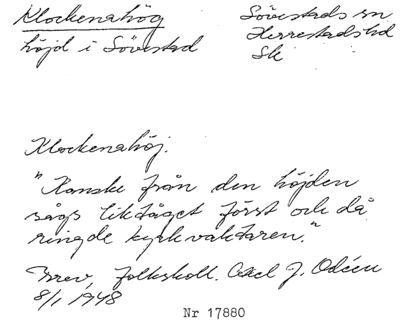 Klockenahög
höjd i Sövestad
Sövestads sn
Herrestads hd
Sk
Klockenahöj.
"Kanske från den höjden
sågs liktåget först och då
ringde kyrkvaktaren."
Brev, folkskoll. Axel J. Odéen
8/1 1948
Nr 17880